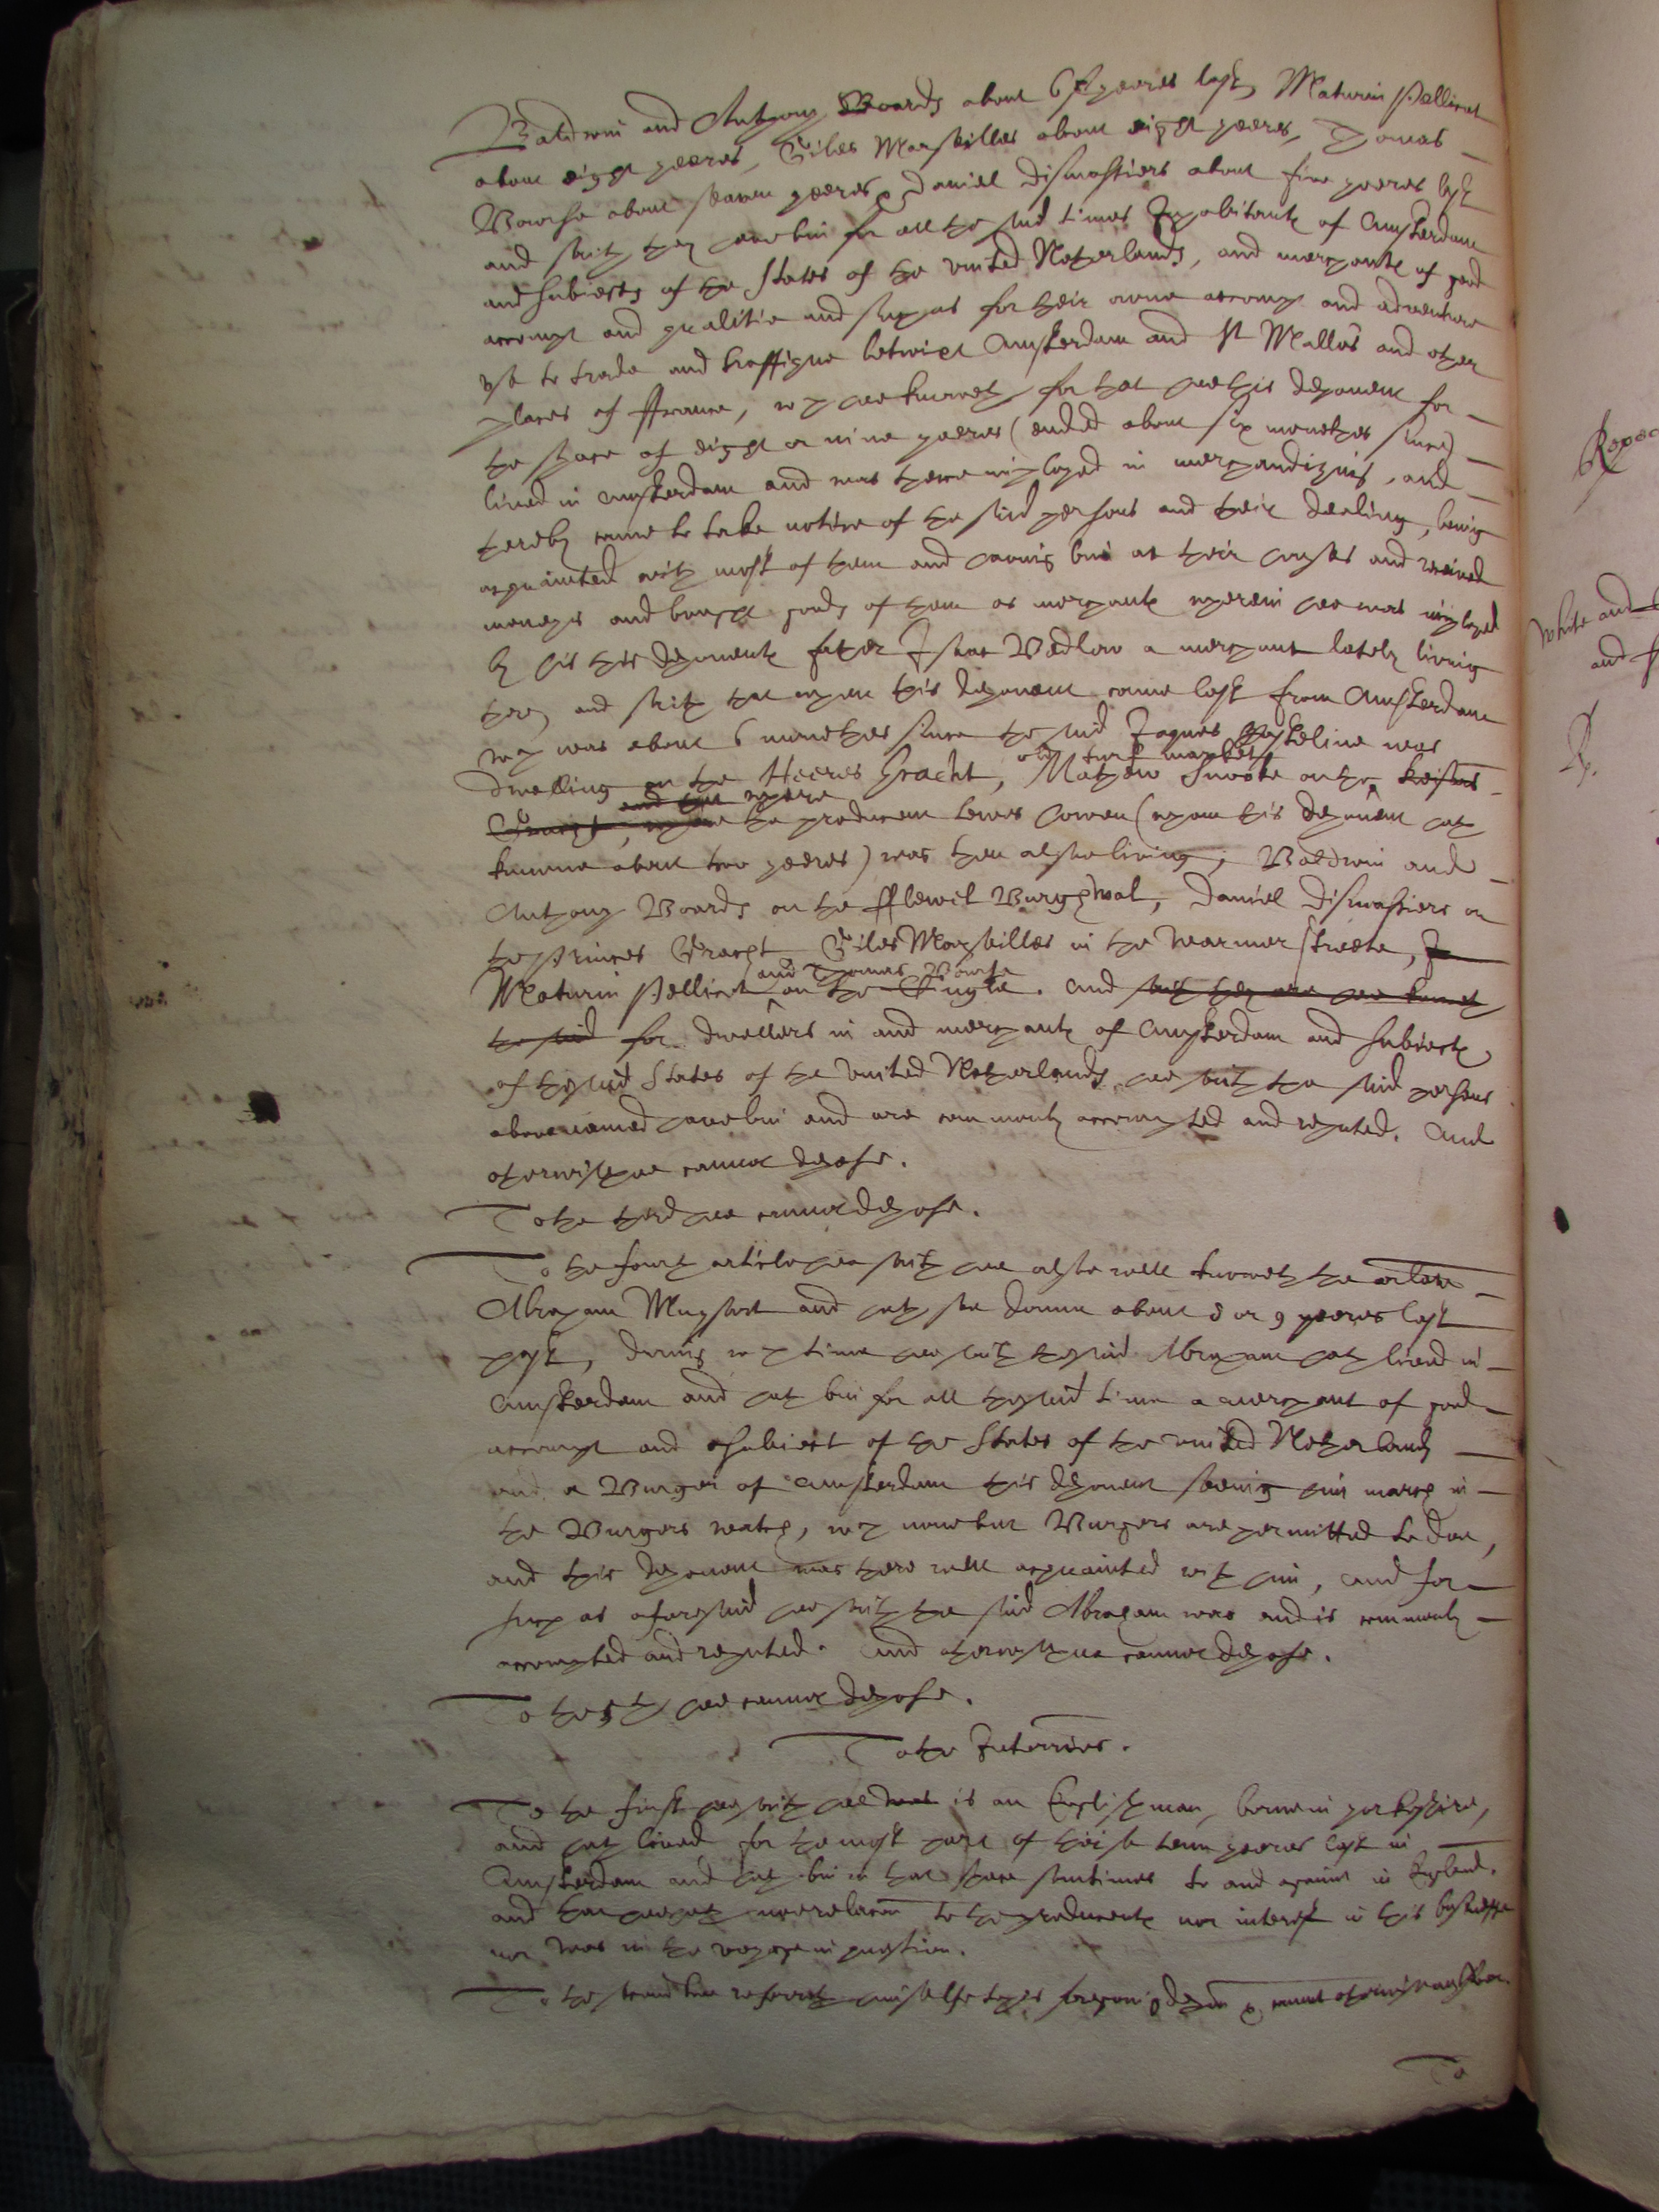 Baldwin and Anthony Boards about 6 yeeres last, Maturin Pellicot
about eight yeeres, Giles Marseilles about eight yeeres, Thomas
Bourse about seaven yeeres, Daniel Dismassiers about five yeeres last
and saith they have bin for all the said times Inhabitants of Amsterdam
and subiects of the States of the united Netherlands, and merchants of good
accompt and qualitie and such as for their owne accompt and adventure
use to trade and traffique betwixt Amsterdam and St Mallos and other
places of ffrance, wch hee knoweth for that hee this deponent for
the space of eight or nine yeeres (ended about six monethes since)
lived in Amsterdam and was there imployed in merchandizing, and
thereby came to take notice of the said persons and their dealing, being
acquainted with most of them and having bin at their houses and received
moneys and bought goods of them as merchants wherein hee was imployed
by his this deponents father Isaac Bedlow a merchant lately living
there, and saith that when this deponent came last from Amsterdam
wch was about 6 monethes since the said Jaques was
old turf market
dwelling on the Heeres Gracht, Mathew on the Keisars
and that where
Gracht, where the producent Lewes (whom this deponent hath
knowne about two yeeres) was then alsoe living; Baldwin and
Anthony Boards on the ffleweil Burghwal, Daniel Dismassiers on
the Princes Gracht Giles Marseilles in the Warmer streete, J
and Thomas Bourse
Maturin Pellicot on the Cingle. And saith they are hee knoweth
the said for dwellers in and merchants of Amsterdam and subiects
of the said States of the united Netherlands hee saith the said persons
abovenamed have bin and are commonly accompted and reputed. And
otherwise hee cannot depose.
To the third hee cannot depose.
To the fourth article hee saith hee alsoe well knoweth the arlate
Abraham and hath soe donne about 8 or 9 yeeres last
past, during wch time hee saith the said Abraham hath lived in
Amsterdam and hath bin for all the said time a merchant of good
accompt and a subiect of the States of the united Netherlands
and a Burger of Amsterdam this deponent seeing him march in
the Burgers watch, wch none but Burgers are permitted to doe,
and this deponent was there well acquainted with him, and for
such as aforesaid hee saith the said Abraham was and is commonly
accompted and reputed. And otherwise hee cannot depose.
To the 5th hee cannot depose.
To the Interries.
To the first hee saith hee was is an Englishman, borne in yorkeshire,
and hath lived for the most part of theise tenn yeeres last in
Amsterdam and hath bin in that space somtimes to and againe in England.
and that hee hath noe relacon to the producents nor interest in this busines
nor was in the voyage in question.
To the second hee referreth himselfe to his foregoing depon cannot otherwise answer.
To
Repea
White and
and